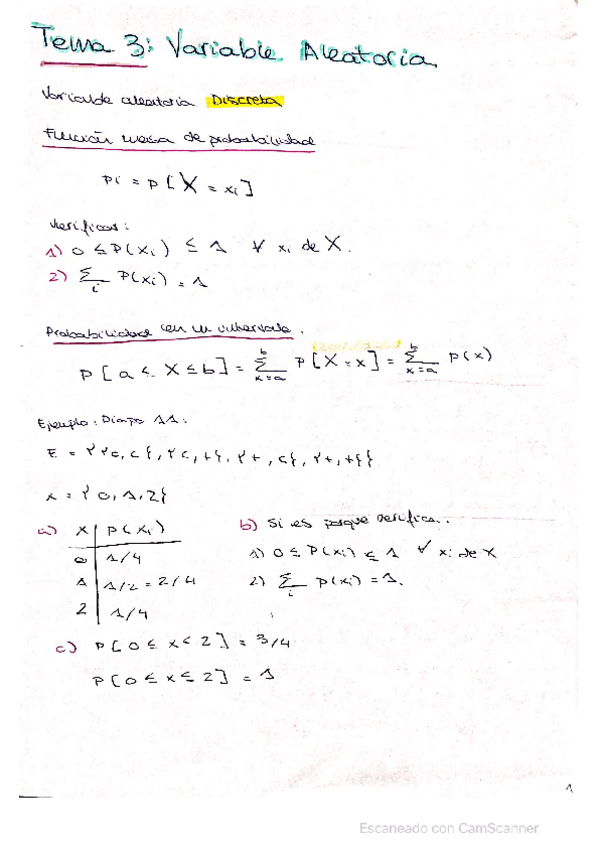 Tema 3: Variable Aleatoria
Variable aleatoria Discreta
Función masa de probabilidad
pi = p [X = xi]
Verificar:
1) 0 ≤ P(xi) ≤ 1 ∀ xi de X.
2) ∑i P(xi) = 1
Probabilidad en un intervalo.
p [a ≤ X ≤ b] = ∑ x=a b p [X = x] = ∑ x=a b p(x)
Ejemplo: Diapo 11:
E = {{c, c}, {c, +}, {+, c}, {+, +}}
x = {0, 1, 2}
a) X | P(xi)
0 | 1/4
1 | 1/2 = 2/4
2 | 1/4
b) Si es porque verifica..
1) 0 ≤ P(xi) ≤ 1 ∀ xi de X
2) ∑i p(xi) = 1.
c) P[0 ≤ x < 2] = 3/4
P[0 ≤ x ≤ 2] = 1
1
Escaneado con CamScanner